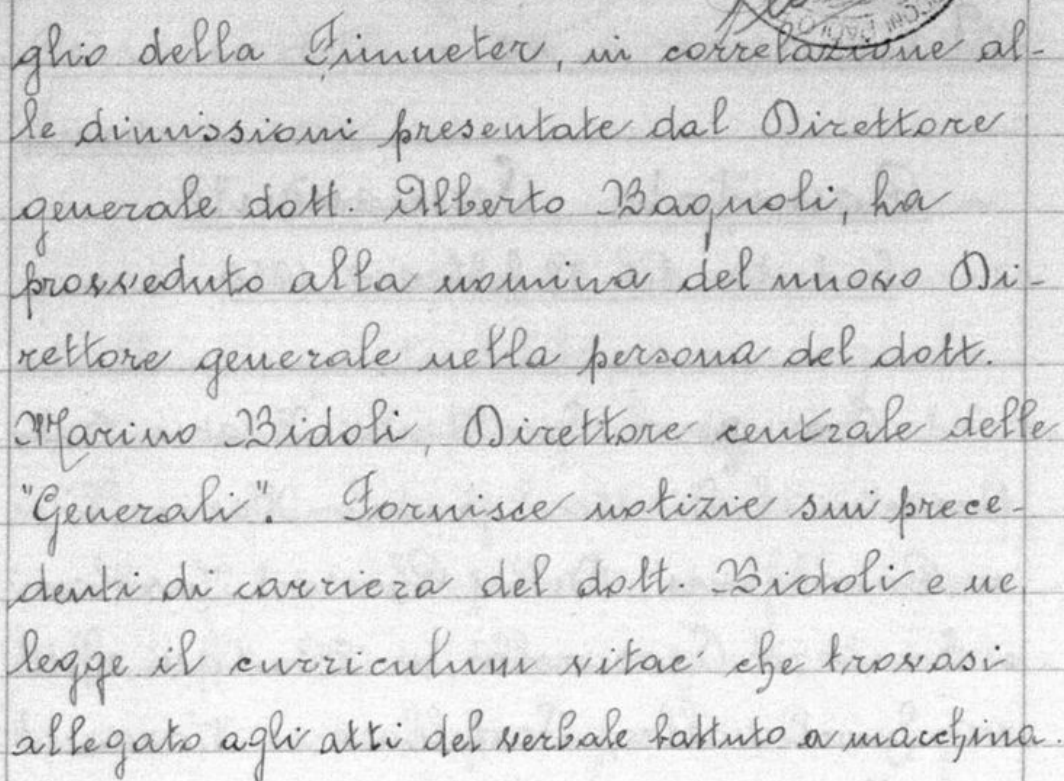 glio della Finmeter, in correlazione al-
le dimissioni presentate dal Direttore
generale dott. Alberto Bagnoli, ha
provveduto alla nomina del nuovo Di-
rettore generale nella persona del dott.
Marino Bidoli, Direttore centrale delle
"Generali". Fornisce notizie sui prece-
denti di carriera del dott. Bidoli e ne
legge il curriculum vitae che trovasi
allegato agli atti del verbale battuto a macchina.